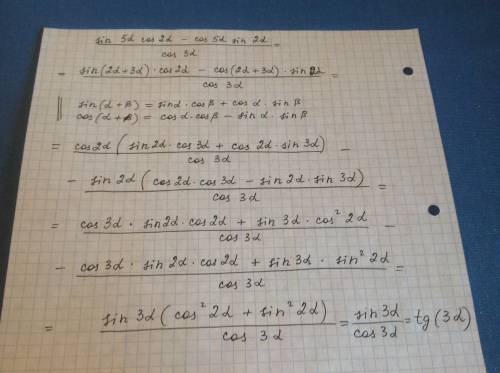 sin 5α cos 2α − cos 5α sin 2α / cos 3α =
= sin(2α+3α)·cos2α − cos(2α+3α)·sin2α / cos 3α =
sin(α+β) = sinα·cosβ + cosα·sinβ
cos(α+β) = cosα·cosβ − sinα·sinβ
= cos2α(sin2α·cos3α + cos2α·sin3α) / cos3α −
− sin2α(cos2α·cos3α − sin2α·sin3α) / cos3α =
= cos3α·sin2α·cos2α + sin3α·cos²2α / cos3α −
− cos3α·sin2α·cos2α + sin3α·sin²2α / cos3α =
= sin3α(cos²2α + sin²2α) / cos 3α = sin3α / cos3α = tg(3α)